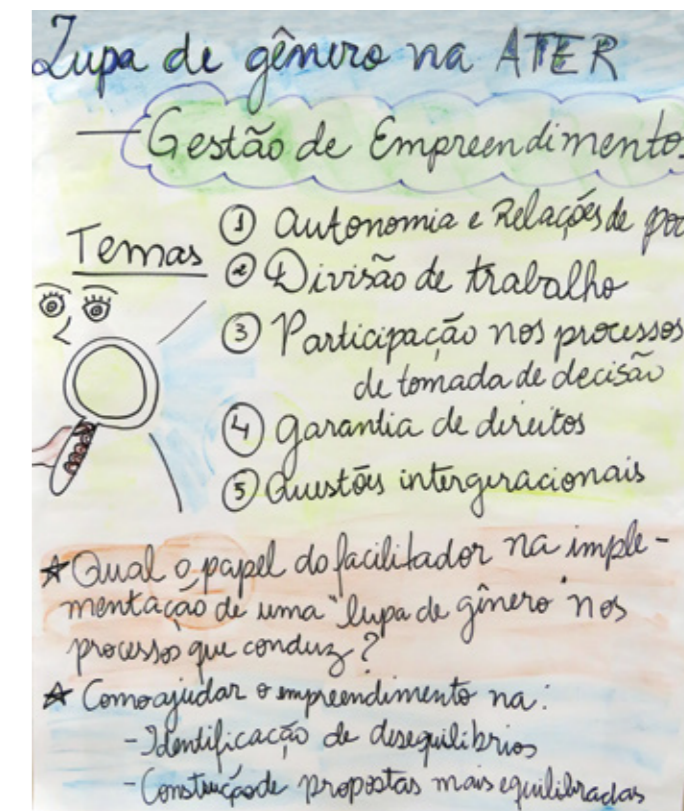 Lupa de gênero na ATER
— Gestão de Empreendimento
Temas
① Autonomia e Relações de po
② Divisão de trabalho
③ Participação nos processos
de tomada de decisão
④ garantia de direitos
⑤ Questões intergeracionais
★ Qual o papel do facilitador na imple-
mentação de uma "lupa de gênero" nos
processos que conduz?
★ Como ajudar o empreendimento na:
- Identificação de desequilíbrios
- Construção de propostas mais equilibradas